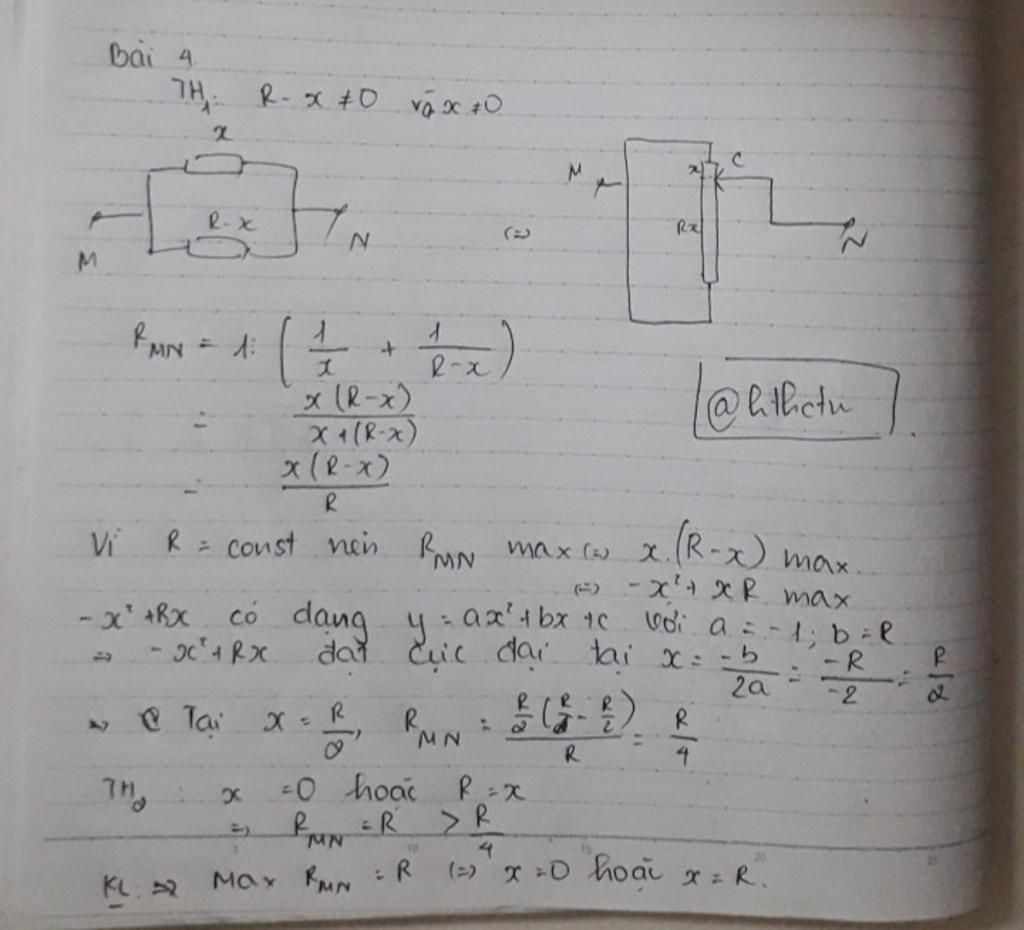 Bài 4.
TH₁: R - x ≠ 0 và x ≠ 0
x
R - x
M
N
(=)
M
x
C
Rx
N
R_MN = 1: ( 1/x + 1/(R-x) )
= x(R-x) / x+(R-x)
= x(R-x) / R
@hthctu
Vì R = const nên R_MN max (=) x.(R-x) max.
(=) -x² + xR max
-x² + Rx có dạng y = ax² + bx + c với a = -1; b = R
=> -x² + Rx đạt cực đại tại x = -b/2a = -R/-2 = R/2
=> Tại x = R/2, R_MN = R/2 (R/2 - R/2) / R = R/4
TH₂: x = 0 hoặc R = x
=> R_MN = R > R/4
KL => Max R_MN = R (=) x = 0 hoặc x = R.